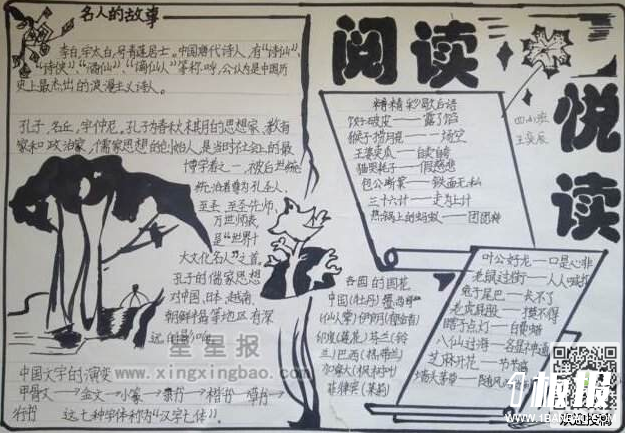 名人的故事
李白,字太白,号青莲居士。中国唐代诗人,有“诗仙”、
“诗侠”、
等称呼,公认为是中国历
史上最杰出的浪漫主义诗人。
孔子,名丘,字仲尼。孔子为春秋末期的思想家、教育
家和政治家,儒家思想的创始人,是当时社会上的最
博学者之一,被后世统
治者尊为孔圣人、
至圣、至圣先师、
万世师表,
是“世界十
大文化名人”之首。
孔子的儒家思想
对中国、日本、越南、
朝鲜韩国等地区有深
远的影响。
中国文字的演变
甲骨文→金文→小篆→隶书→楷书→草书→
行书 这七种字体称为“汉字七体”。
星星报
www.xingxingbao.com
阅读
悦读
精彩歇后语
饺子破皮——露了馅
猴子捞月亮——一场空
王婆卖瓜——自卖自夸
猫哭耗子——假慈悲
包公断案——铁面无私
三十六计——走为上计
热锅上的蚂蚁——团团转
叶公好龙——口是心非
老鼠过街——人人喊打
兔子尾巴——长不了
老虎屁股——摸不得
瞎子点灯——白费蜡
八仙过海——各显神通
芝麻开花——节节高
墙头茅草——随风
各国的国花
中国(牡丹)墨西哥
(仙人掌)伊朗(郁金香)
印度(莲花)芬兰(铃
兰)巴西
菲律宾(茉莉)
板报